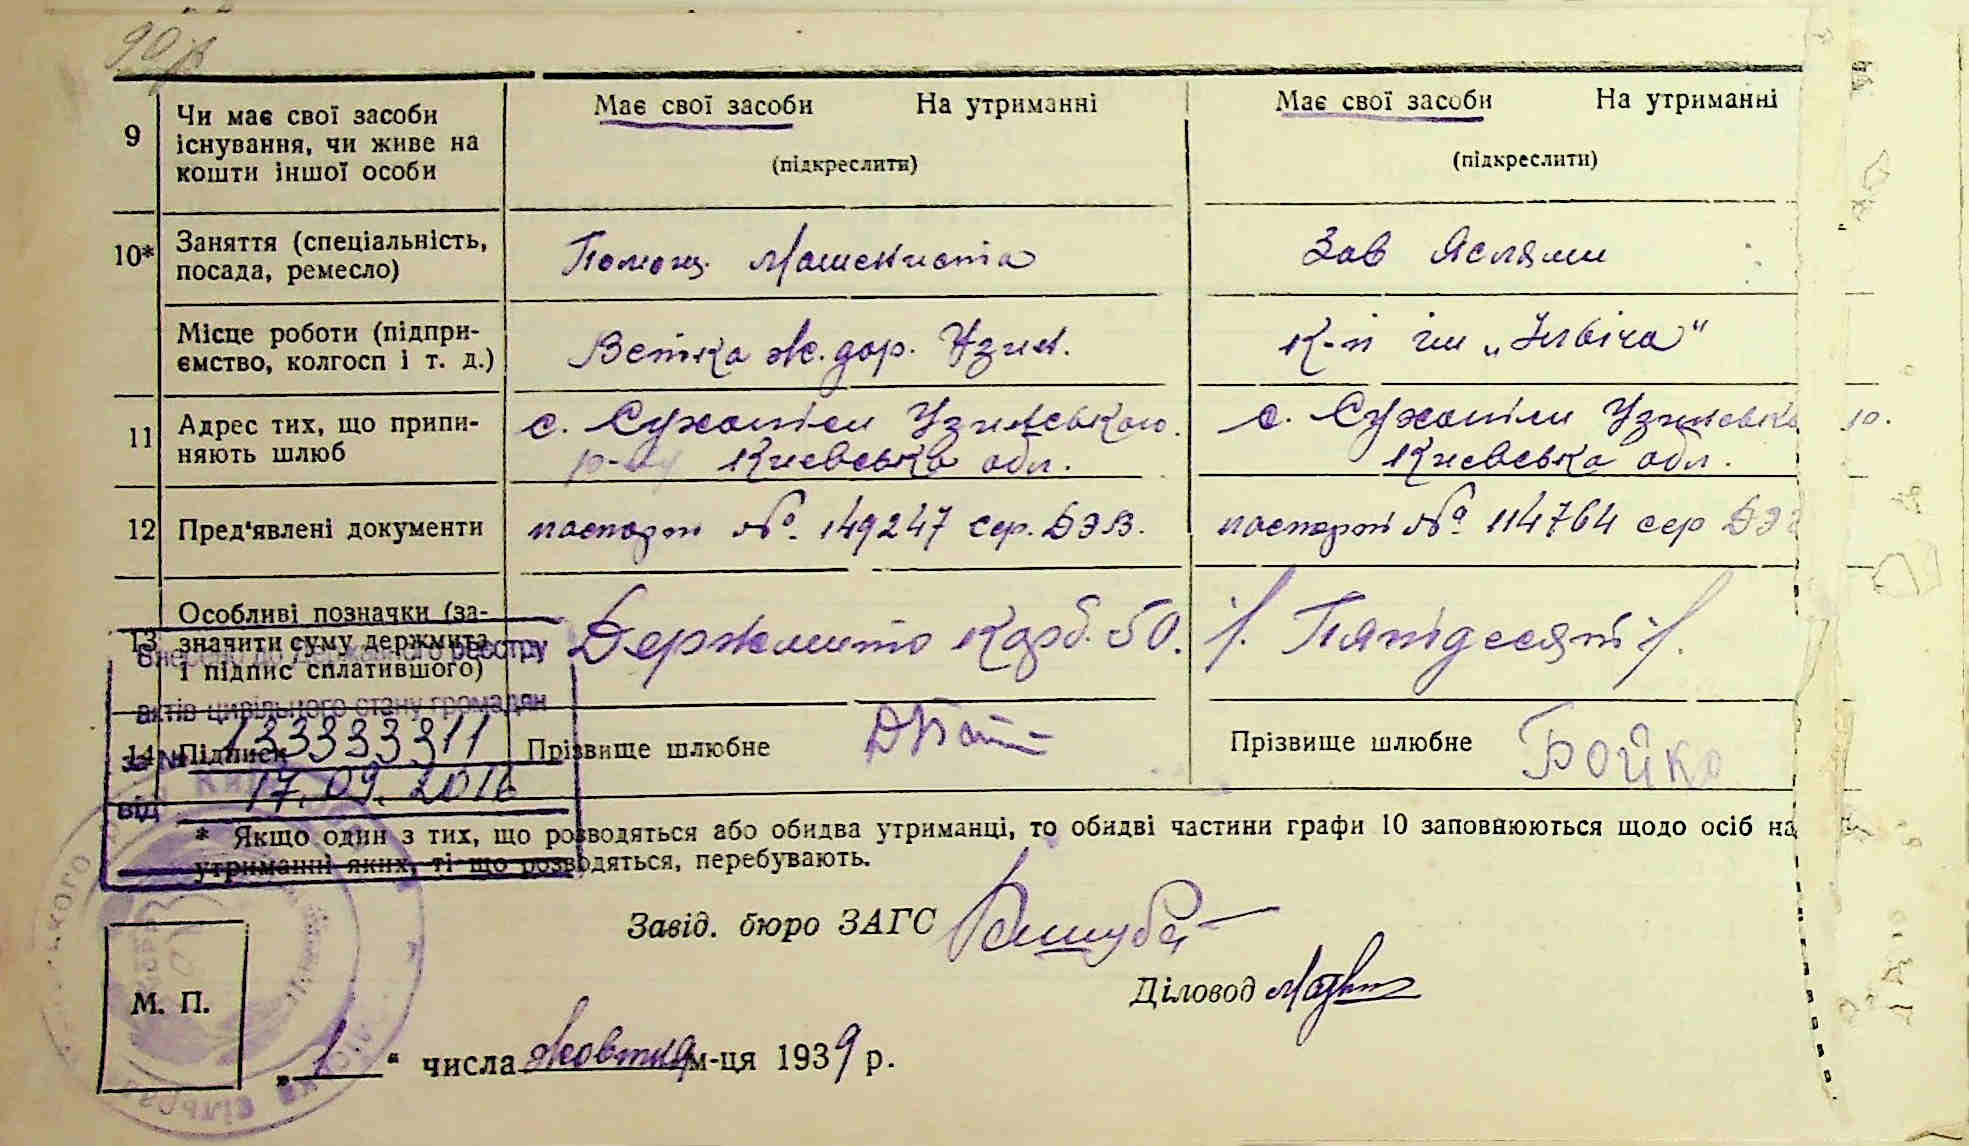 90
9 Чи має свої засоби існування, чи живе на кошти іншої особи
Має свої засоби На утриманні
(підкреслити)
Має свої засоби На утриманні
(підкреслити)
10* Заняття (спеціальність, посада, ремесло)
Помощ. Машениста
Зав Яслями
Місце роботи (підпри-
ємство, колгосп і т. д.)
Ветка ж. дор. Узин.
К-п ім „Ілвіча“
11 Адрес тих, що припи-
няють шлюб
с. Сухоліси Узинського
р-ну Киевська обл.
с. Сухоліси Узинсько р.
Киевська обл.
12 Пред'явлені документи
паспорт №. 149247 сер. ДЭВ.
паспорт № 114764 сер ДЭ
13 Особливі позначки (за-
значити суму держмита
і підпис сплатившого)
Держмито карб. 50.
Пятідесят
14 Підписи
Прізвище шлюбне
Прізвище шлюбне Бойко
Внесено до Державного реєстру
актів цивільного стану громадян
за № 1333333311
від 17.09.2016
* Якщо один з тих, що розводяться або обидва утриманці, то обидві частини графи 10 заповнюються щодо осіб на
утриманні яких, ті що розводяться, перебувають.
Завід. бюро ЗАГС
Діловод
М. П.
„1“ числа жовтня м-ця 1939 р.